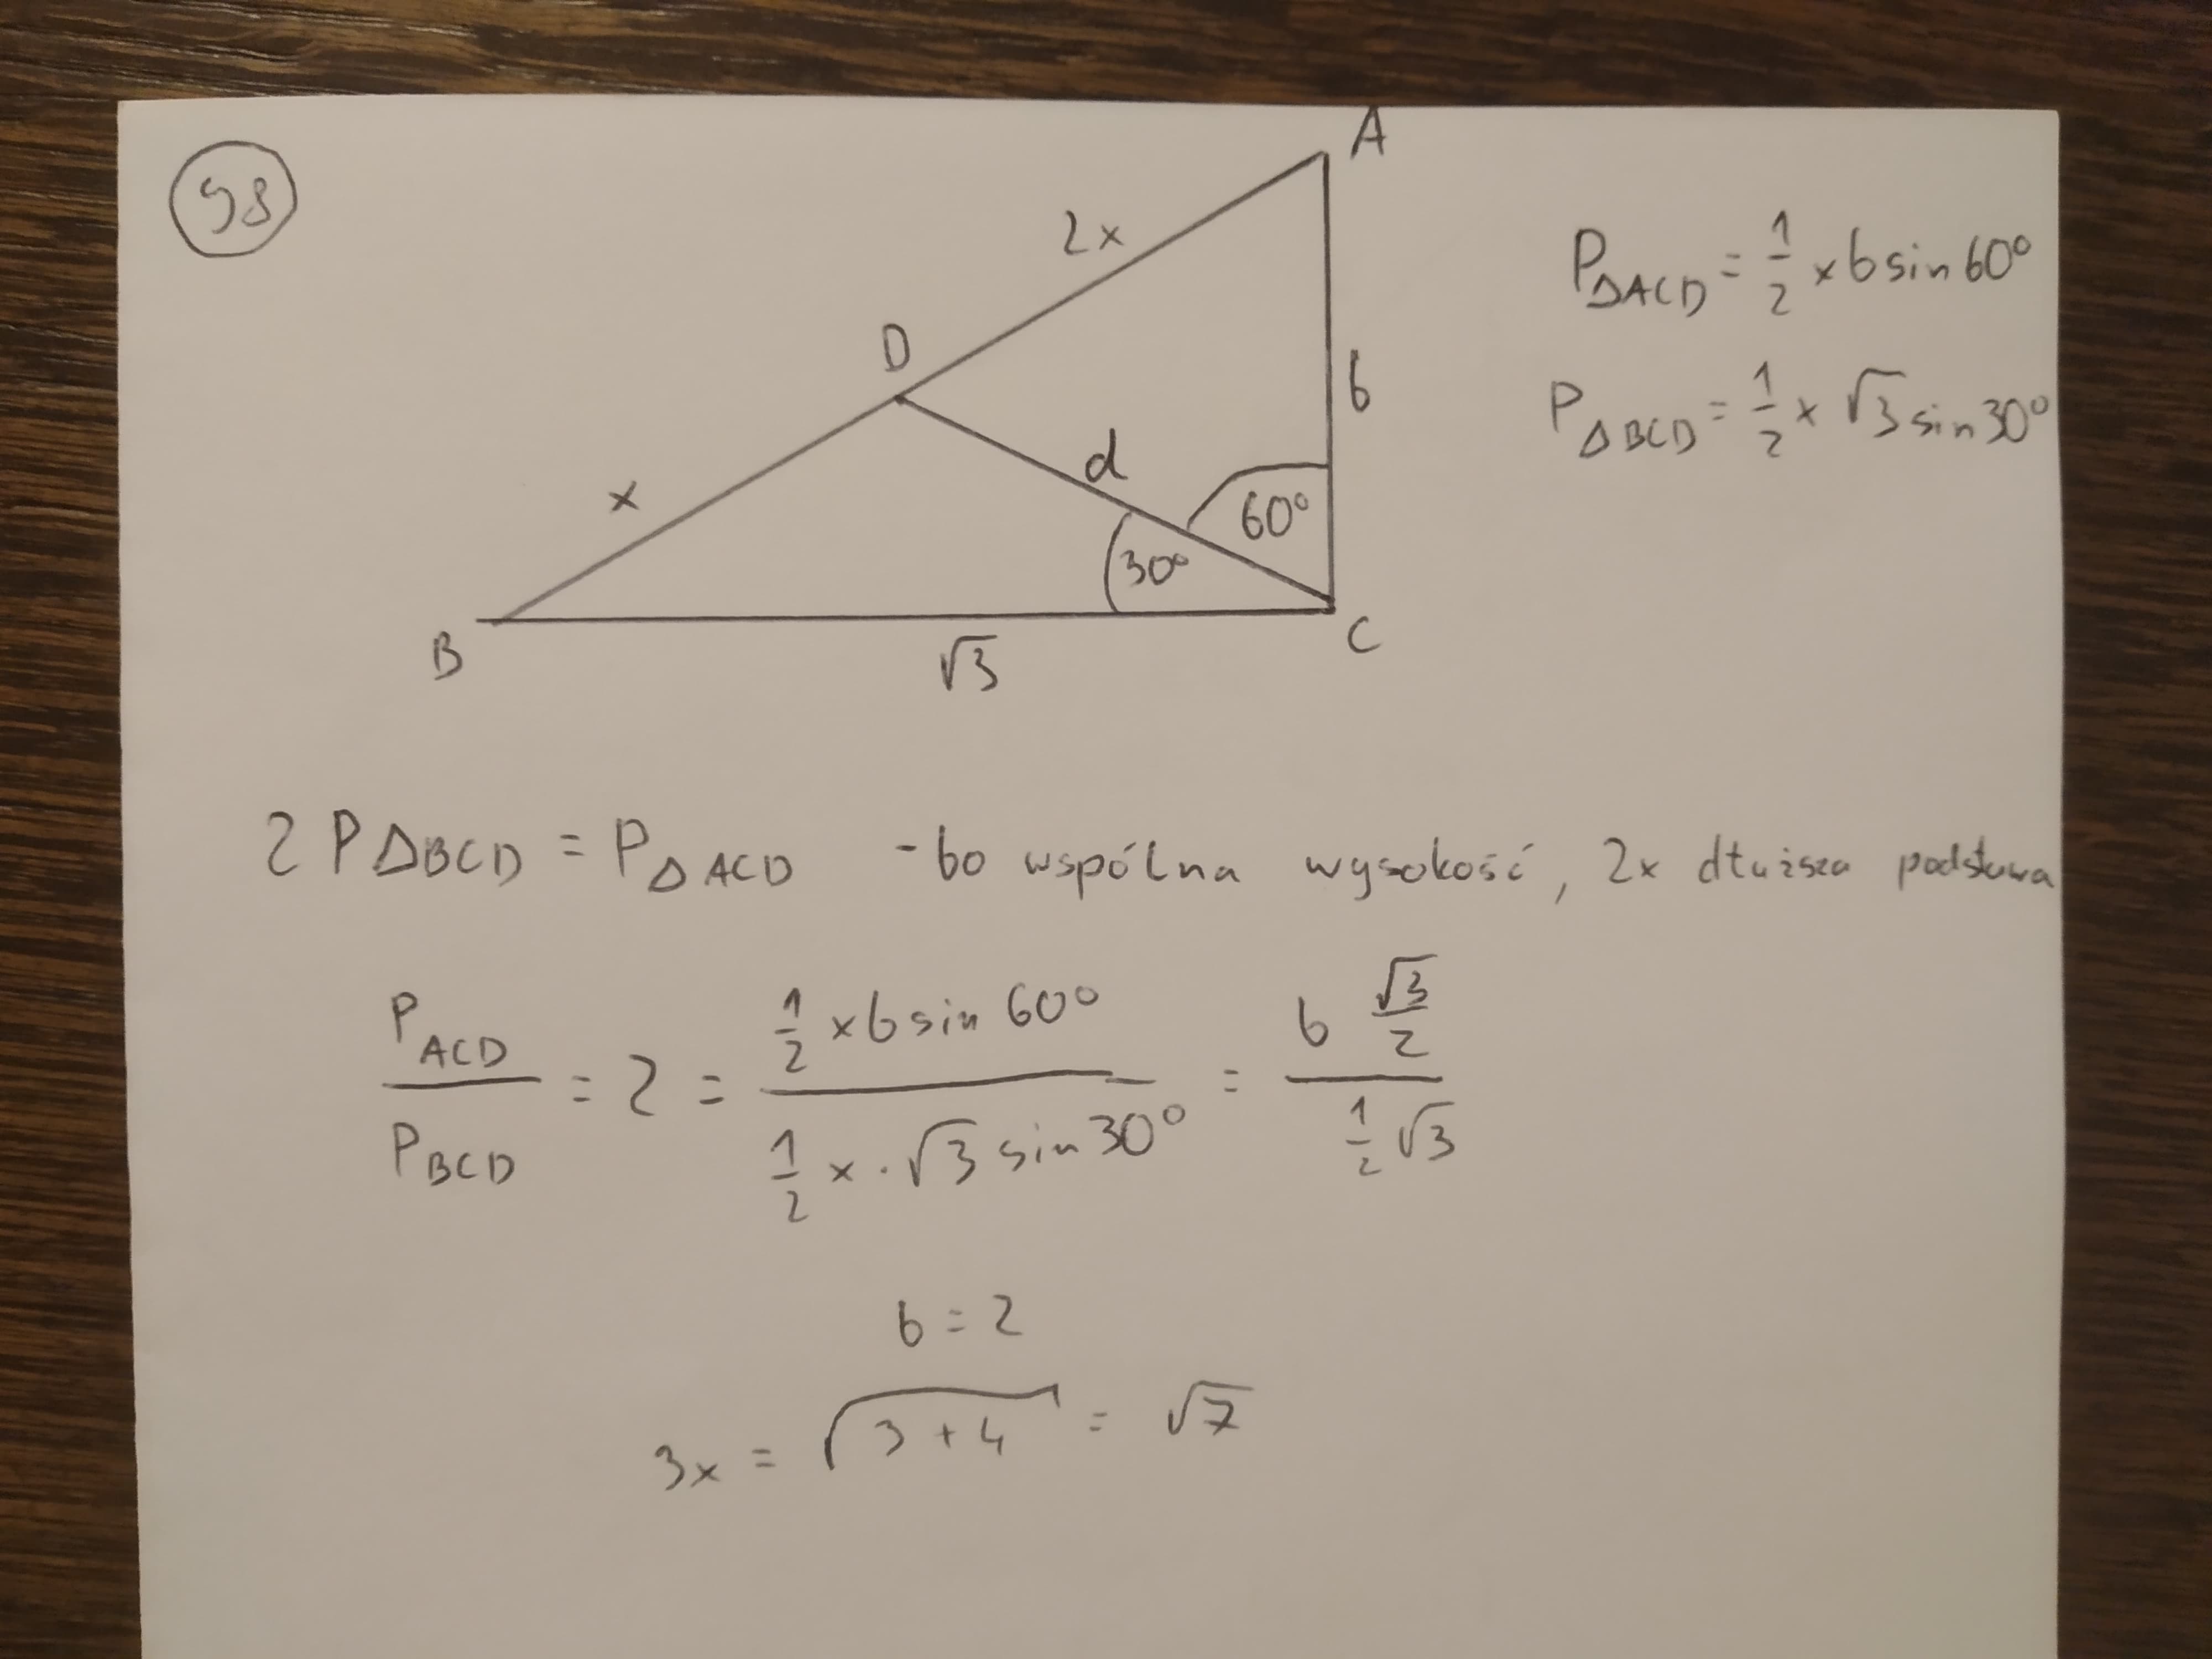 98
A
2x
D
b
d
x
60°
30°
B
√3
C
P△ACD = 1/2 x b sin 60°
P△BCD = 1/2 x √3 sin 30°
2 P△BCD = P△ACD - bo wspólna wysokość, 2x dłuższa podstawa
P ACD / P BCD = 2 = (1/2 x b sin 60°) / (1/2 x · √3 sin 30°) = (b √3/2) / (1/2 √3)
b = 2
3x = √(3 + 4) = √7